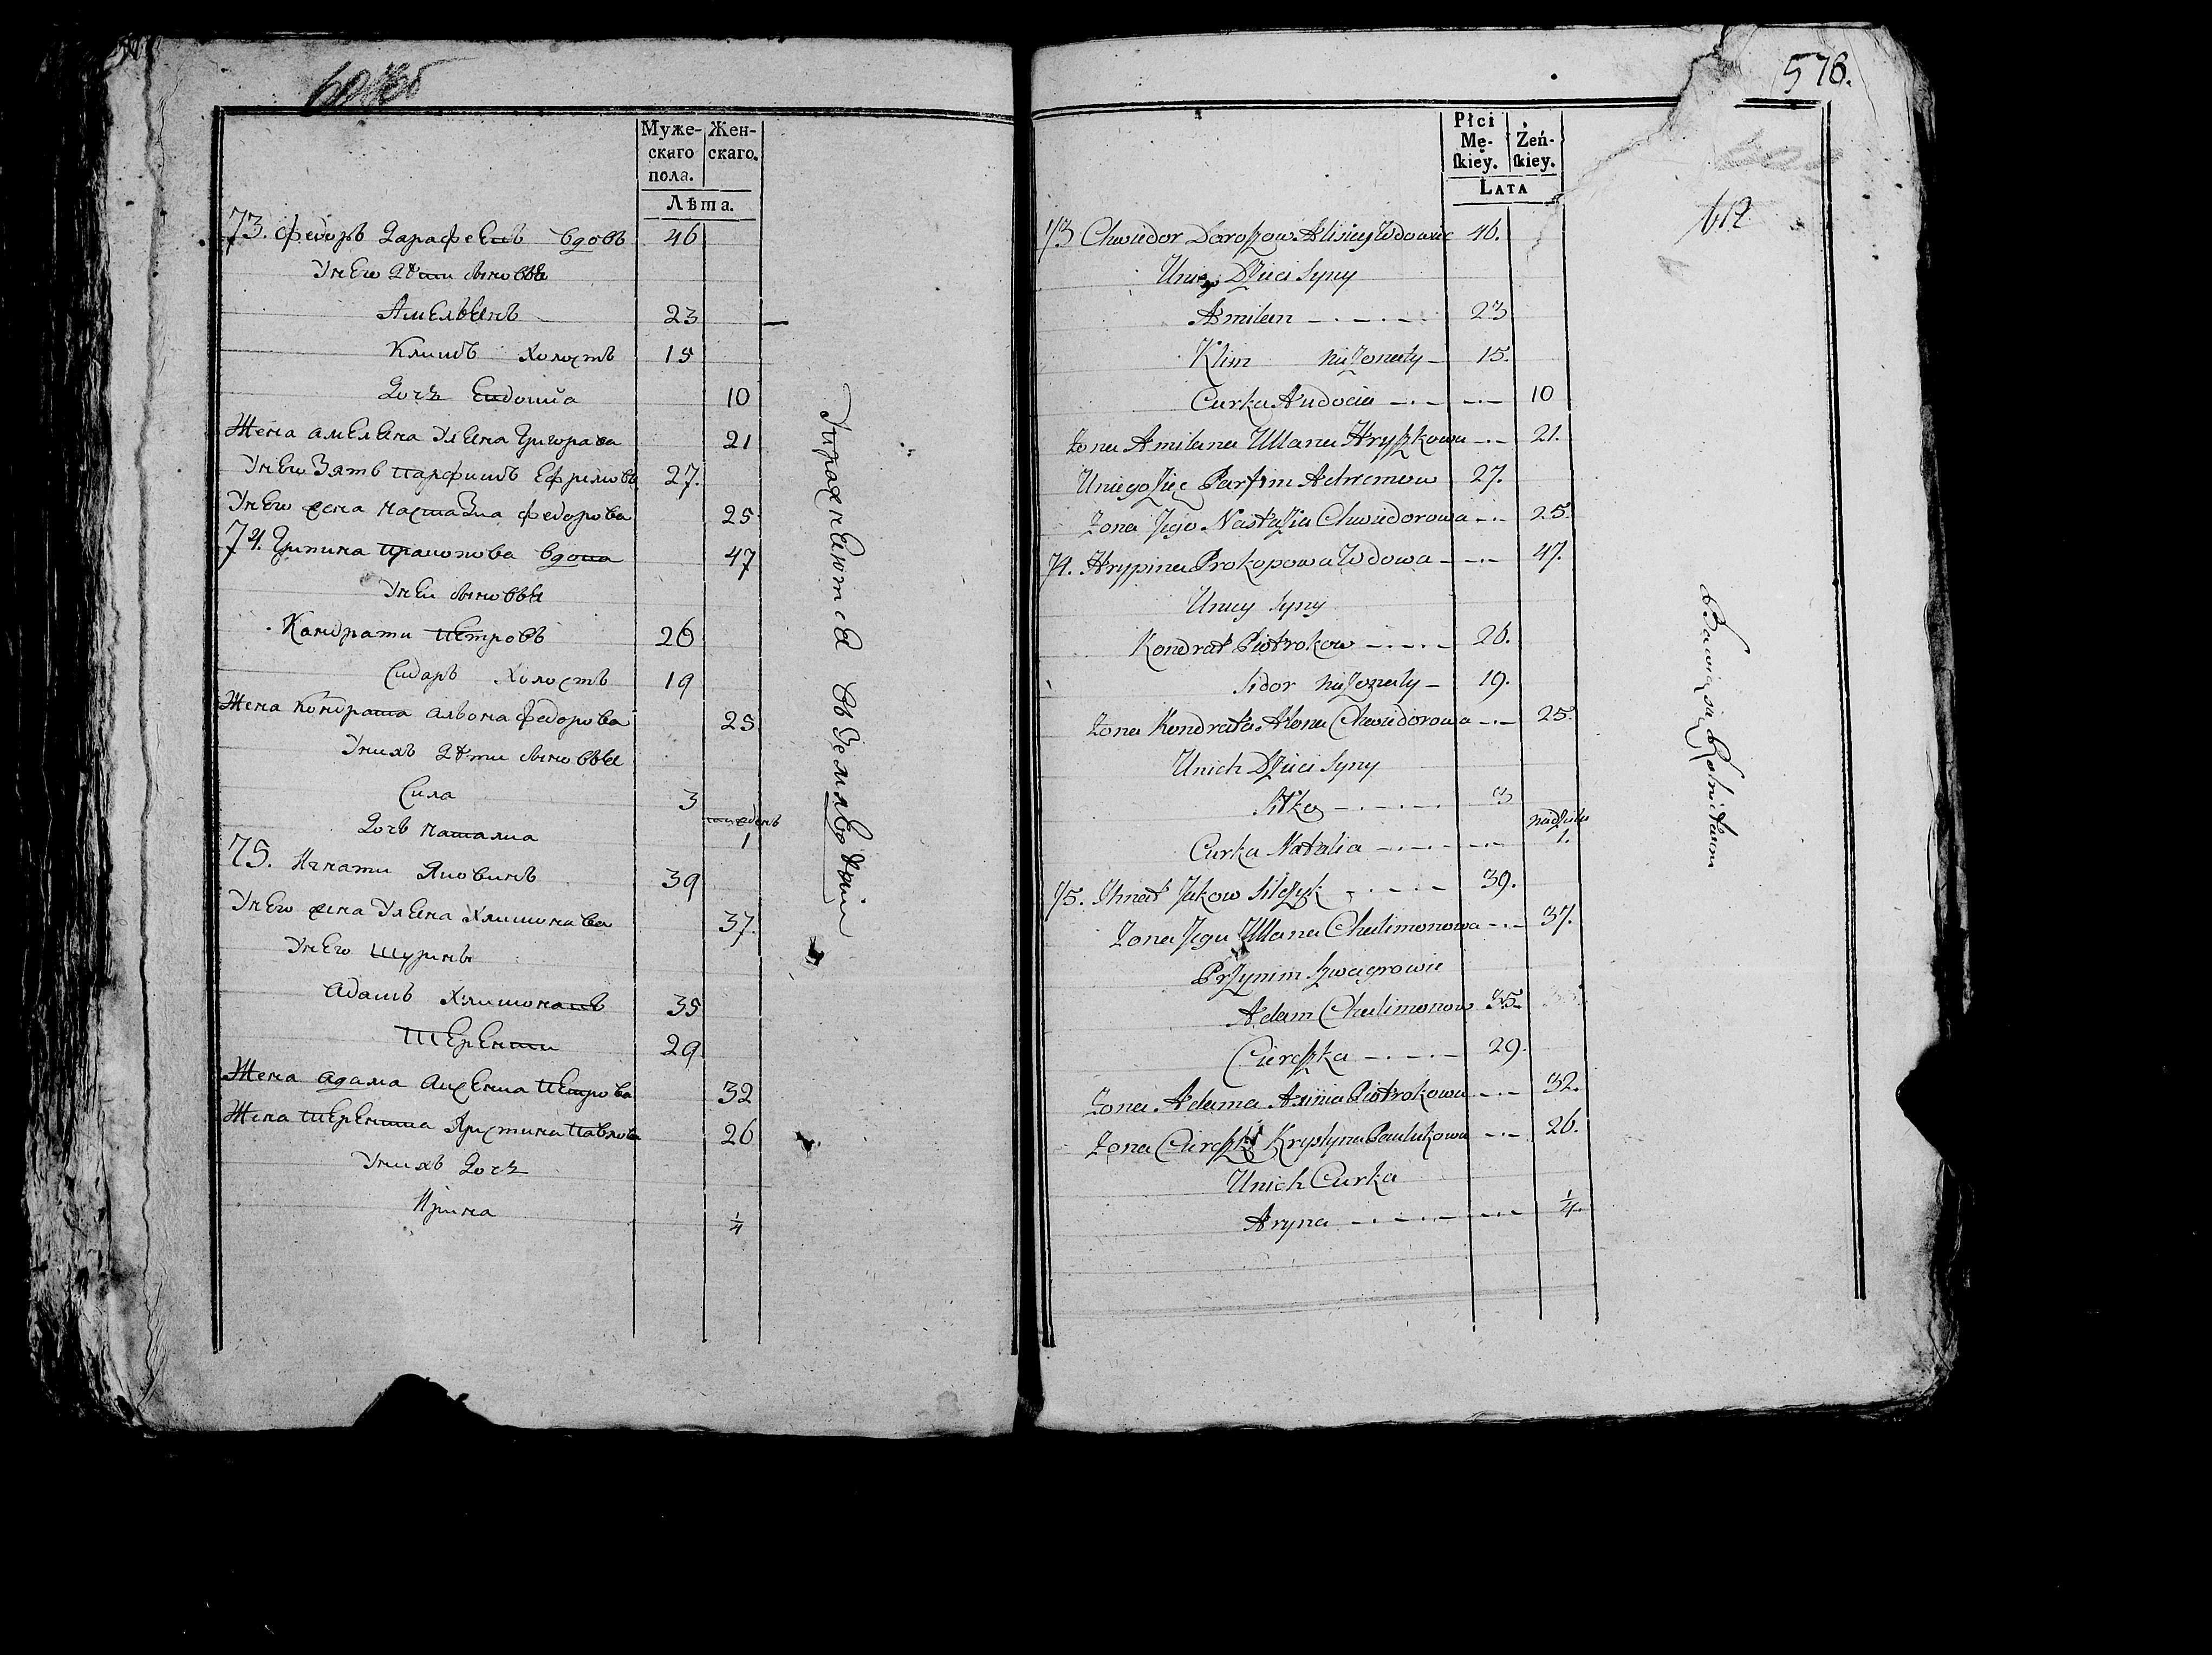 Муже-
скаго
пола.
Жен-
скаго.
Лѣта.
73. Федоръ Дарафеевъ вдовъ 46
У него дѣти сыновья
Амельянъ 23
Климъ холостъ 15
Дочь Евдокия 10
Жена Амеляна Уляна Григорава 21
У него зять Парфимъ Ефримовъ 27.
У него жена Настазиа Федорова 25
74. Грипина Пракопова вдова 47
У неи сыновья
Кандрати Петровъ 26
Сидаръ холостъ 19
Жена Кондрата Альона Федорова 25
У нихъ дѣти сыновья
Сила 3
Дочь Наталиа 1
75. Игнати Яковинъ 39
У него жена Уляна Хлимонава 37.
У него шурины
Адамъ Хлимонавъ 35
Теренти 29
Жена Адама Аксениа Петрова 32
Жена Терентиа Христина Павлова 26
У нихъ дочь
Ирина 1/4
Упражняются въ земледѣлии
576.
612
Płci
Mę-
ſkiey.
Żeń-
ſkiey.
Lata
73 Chwiedor Doroszow Wdowiec 46.
Uniego Dzieci Syny
Amilan 23
Klim nieżonaty 15.
Curka Audocia 10
Żona Amilana Ullana Hryszkowa 21.
Uniego Zięc Parfim Achremow 27.
Żona Jego Nastazia Chwiedorowa 25.
74. Hrypina Prokopowa Wdowa 47.
Uniey Syny
Kondrat Piotrokow 26.
Sidor nieżonaty 19.
Żona Kondrata Alona Chwiedorowa 25.
Unich Dzieci Syny
Silko 3
Curka Natalia 1.
75. Ihnat Jakow 39.
Żona Jego Ullana Chalimonowa 37.
Przynim Szwagrowie
Adam Chalimonow 35.
Cieraszka 29.
Żona Adama Axinia Piotrokowa 32.
Żona Cieraszki Krystyna Paulukowa 26.
Unich Curka
Aryna 1/4.
Bawią się Rolnictwem